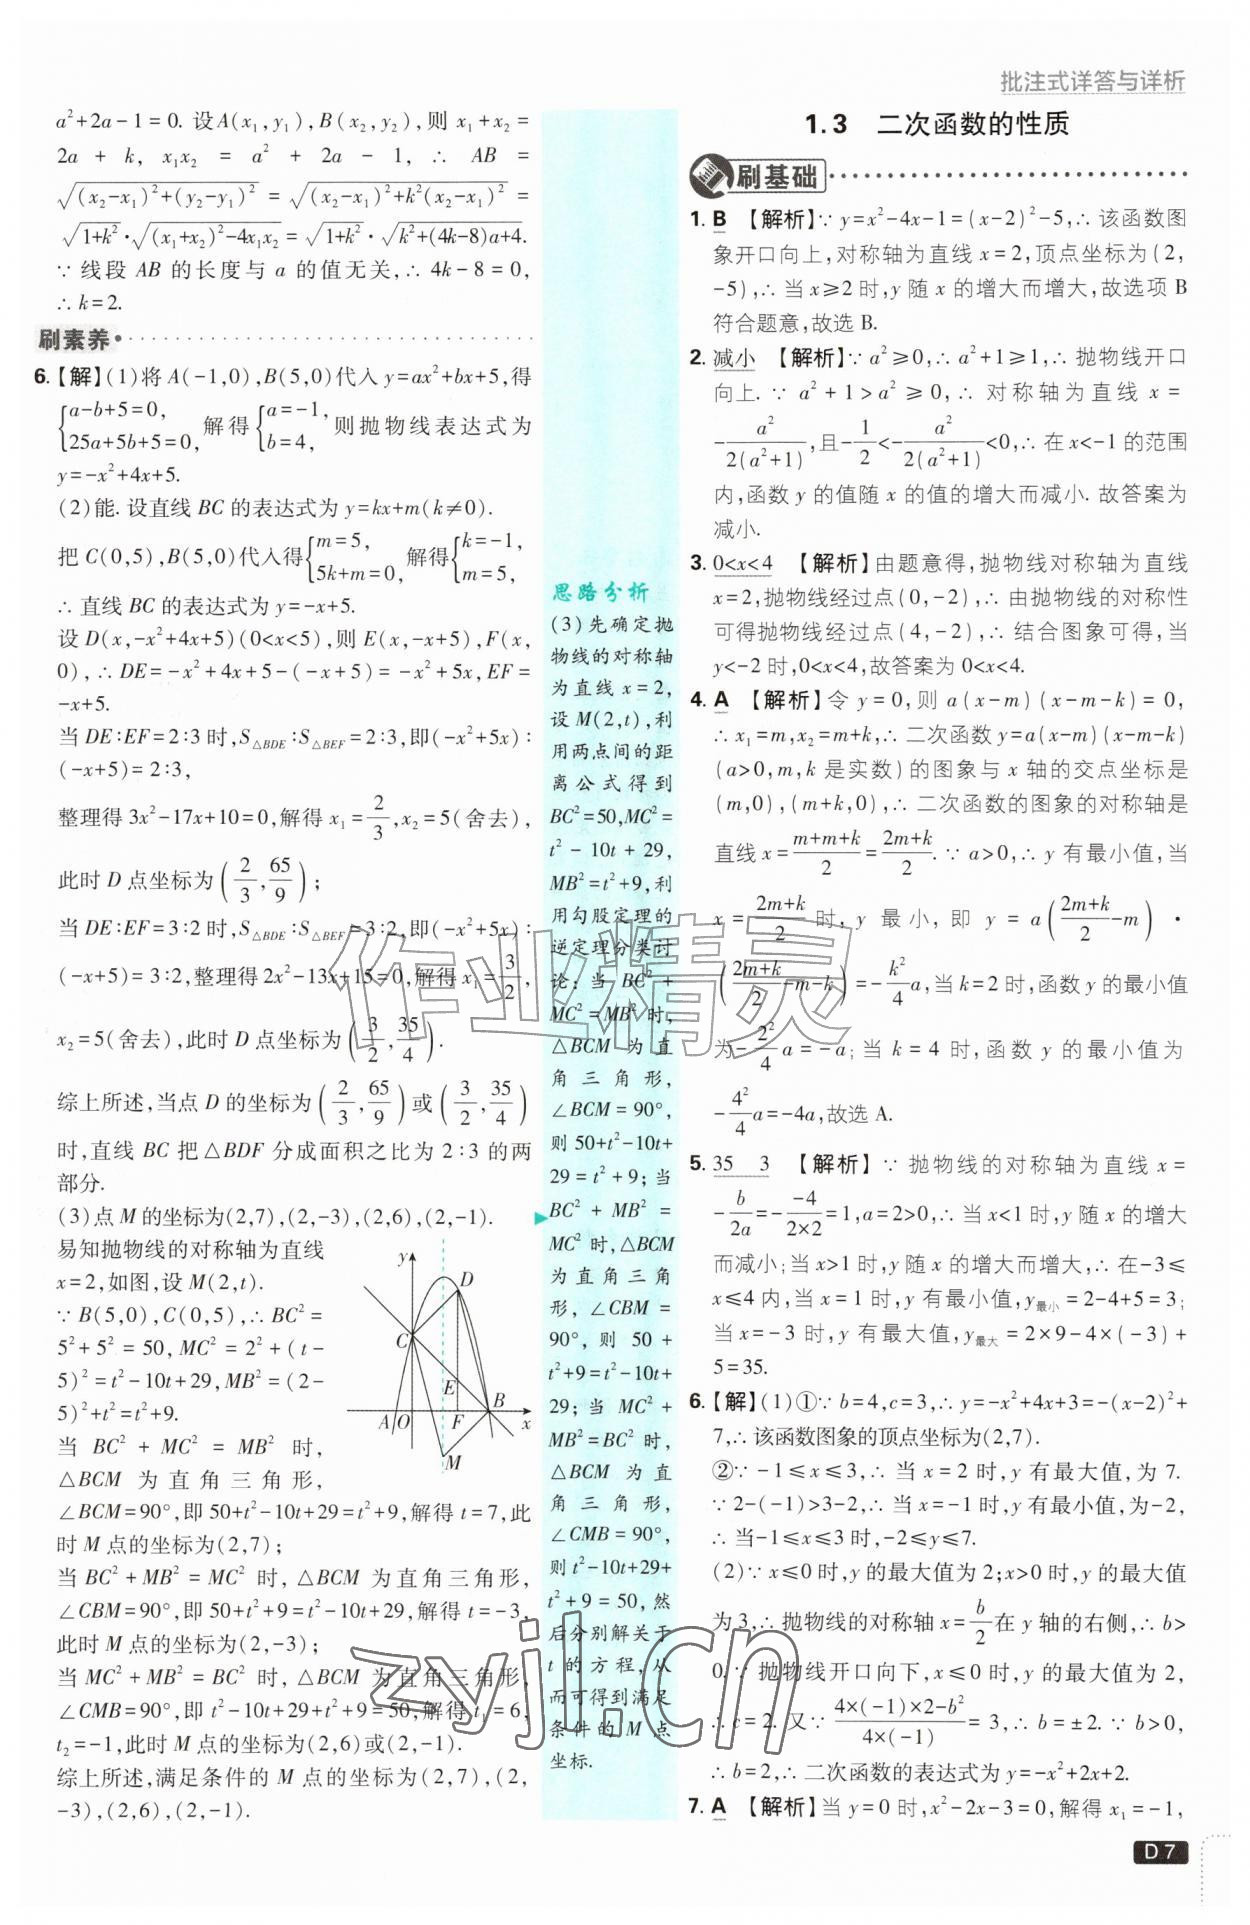 批注式详答与详析
a²+2a-1=0. 设A(x₁,y₁),B(x₂,y₂),则 x₁+x₂=
2a + k, x₁x₂ = a² + 2a - 1, ∴ AB =
√((x₂-x₁)²+(y₂-y₁)²) = √((x₂-x₁)²+k²(x₂-x₁)²) =
√(1+k²)·√((x₁+x₂)²-4x₁x₂) = √(1+k²)·√(k²+(4k-8)a+4).
∵ 线段 AB 的长度与 a 的值无关,∴ 4k-8=0,
∴ k=2.
刷素养
6.【解】(1)将A(-1,0),B(5,0)代入y=ax²+bx+5,得
{a-b+5=0, 25a+5b+5=0, 解得{a=-1, b=4, 则抛物线表达式为
y=-x²+4x+5.
(2)能. 设直线BC的表达式为y=kx+m(k≠0).
把C(0,5),B(5,0)代入得{m=5, 5k+m=0, 解得{k=-1, m=5,
∴ 直线BC的表达式为y=-x+5.
设D(x,-x²+4x+5)(0<x<5),则E(x,-x+5),F(x,
0),∴ DE=-x²+4x+5-(-x+5)=-x²+5x,EF=
-x+5.
当DE∶EF=2∶3时,S△BDE∶S△BEF=2∶3,即(-x²+5x)∶
(-x+5)=2∶3,
整理得3x²-17x+10=0,解得x₁=2/3,x₂=5(舍去),
此时D点坐标为(2/3,65/9);
当DE∶EF=3∶2时,S△BDE∶S△BEF=3∶2,即(-x²+5x)∶
(-x+5)=3∶2,整理得2x²-13x+15=0,解得x₁=3/2,
x₂=5(舍去),此时D点坐标为(3/2,35/4).
综上所述,当点D的坐标为(2/3,65/9)或(3/2,35/4)
时,直线BC把△BDF分成面积之比为2∶3的两
部分.
(3)点M的坐标为(2,7),(2,-3),(2,6),(2,-1).
易知抛物线的对称轴为直线
x=2,如图,设M(2,t).
∵ B(5,0),C(0,5),∴ BC²=
5²+5²=50,MC²=2²+(t-
5)²=t²-10t+29,MB²=(2-
5)²+t²=t²+9.
当 BC²+MC²=MB² 时,
△BCM 为直角三角形,
∠BCM=90°,即50+t²-10t+29=t²+9,解得t=7,此
时M点的坐标为(2,7);
当BC²+MB²=MC²时,△BCM为直角三角形,
∠CBM=90°,即50+t²+9=t²-10t+29,解得t=-3,
此时M点的坐标为(2,-3);
当MC²+MB²=BC²时,△BCM为直角三角形,
∠CMB=90°,即t²-10t+29+t²+9=50,解得t₁=6,
t₂=-1,此时M点的坐标为(2,6)或(2,-1).
综上所述,满足条件的M点的坐标为(2,7),(2,
-3),(2,6),(2,-1).
y
D
C
E
B
A
O
F
x
M
思路分析
(3)先确定抛
物线的对称轴
为直线x=2,
设M(2,t),利
用两点间的距
离公式得到
BC²=50,MC²=
t²-10t+29,
MB²=t²+9,利
用勾股定理的
逆定理分类讨
论:当 BC²+
MC²=MB²时,
△BCM 为直
角三角形,
∠BCM=90°,
则50+t²-10t+
29=t²+9;当
BC²+MB²=
MC²时,△BCM
为直角三角
形,∠CBM=
90°,则50+
t²+9=t²-10t+
29;当MC²+
MB²=BC²时,
△BCM 为直
角三角形,
∠CMB=90°,
则t²-10t+29+
t²+9=50,然
后分别解关于
t的方程,从
而可得到满足
条件的M点
坐标.
1.3 二次函数的性质
刷基础
1. B 【解析】∵ y=x²-4x-1=(x-2)²-5,∴ 该函数图
象开口向上,对称轴为直线x=2,顶点坐标为(2,
-5),∴ 当x≥2时,y随x的增大而增大,故选项B
符合题意,故选B.
2. 减小 【解析】∵ a²≥0,∴ a²+1≥1,∴ 抛物线开口
向上. ∵ a²+1>a²≥0,∴ 对称轴为直线x=
-a²/2(a²+1),且-1/2<-a²/2(a²+1)<0,∴ 在x<-1的范围
内,函数y的值随x的值的增大而减小. 故答案为
减小.
3. 0<x<4 【解析】由题意得,抛物线对称轴为直线
x=2,抛物线经过点(0,-2),∴ 由抛物线的对称性
可得抛物线经过点(4,-2),∴ 结合图象可得,当
y<-2时,0<x<4,故答案为0<x<4.
4. A 【解析】令y=0,则a(x-m)(x-m-k)=0,
∴ x₁=m,x₂=m+k,∴ 二次函数y=a(x-m)(x-m-k)
(a>0,m,k是实数)的图象与x轴的交点坐标是
(m,0),(m+k,0),∴ 二次函数的图象的对称轴是
直线x=(m+m+k)/2=(2m+k)/2. ∵ a>0,∴ y有最小值,当
x=(2m+k)/2时,y最小,即y=a((2m+k)/2-m)·
((2m+k)/2-m-k)=-k²/4 a,当k=2时,函数y的最小值
为-2²/4 a=-a;当k=4时,函数y的最小值为
-4²/4 a=-4a,故选A.
5. 35 3 【解析】∵ 抛物线的对称轴为直线x=
-b/2a=-(-4)/(2×2)=1,a=2>0,∴ 当x<1时,y随x的增大
而减小;当x>1时,y随x的增大而增大,∴ 在-3≤
x≤4内,当x=1时,y有最小值,y最小=2-4+5=3;
当x=-3时,y有最大值,y最大=2×9-4×(-3)+
5=35.
6.【解】(1)①∵ b=4,c=3,∴ y=-x²+4x+3=-(x-2)²+
7,∴ 该函数图象的顶点坐标为(2,7).
②∵ -1≤x≤3,∴ 当x=2时,y有最大值,为7.
∵ 2-(-1)>3-2,∴ 当x=-1时,y有最小值,为-2,
∴ 当-1≤x≤3时,-2≤y≤7.
(2)∵ x≤0时,y的最大值为2;x>0时,y的最大值
为3,∴ 抛物线的对称轴x=b/2在y轴的右侧,∴ b>
0. ∵ 抛物线开口向下,x≤0时,y的最大值为2,
∴ c=2. 又∵ (4×(-1)×2-b²)/(4×(-1))=3,∴ b=±2. ∵ b>0,
∴ b=2,∴ 二次函数的表达式为y=-x²+2x+2.
7. A 【解析】当y=0时,x²-2x-3=0,解得x₁=-1,
D 7
作业精灵
zyjl.cn